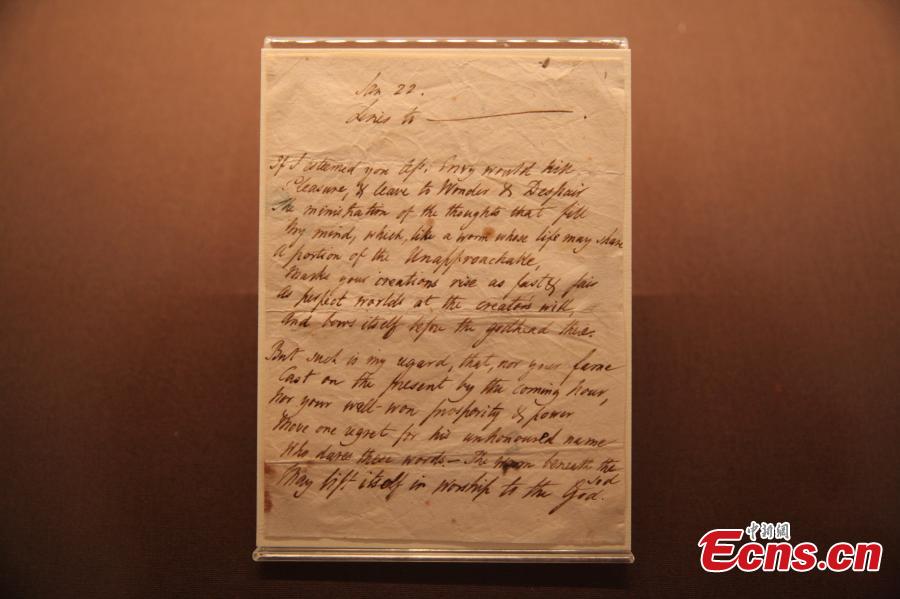 Jan 22.
Lines to ———.
If I esteemed you less, Envy would kill
Pleasure, & leave to Wonder & Despair
The ministration of the thoughts that fill
My mind, which, like a worm whose life may share
A portion of the Unapproachable,
Marks your creations rise as fast & fair
As perfect worlds at the creators will,
And bows itself before the godhead there.
But such is my regard, that, nor your fame
Cast on the present by the coming hour,
Nor your well-won prosperity & power
Move one regret for his unhonoured name
Who dares these words.— The worm beneath the sod
May lift itself in worship to the God.
中新網
Ecns.cn